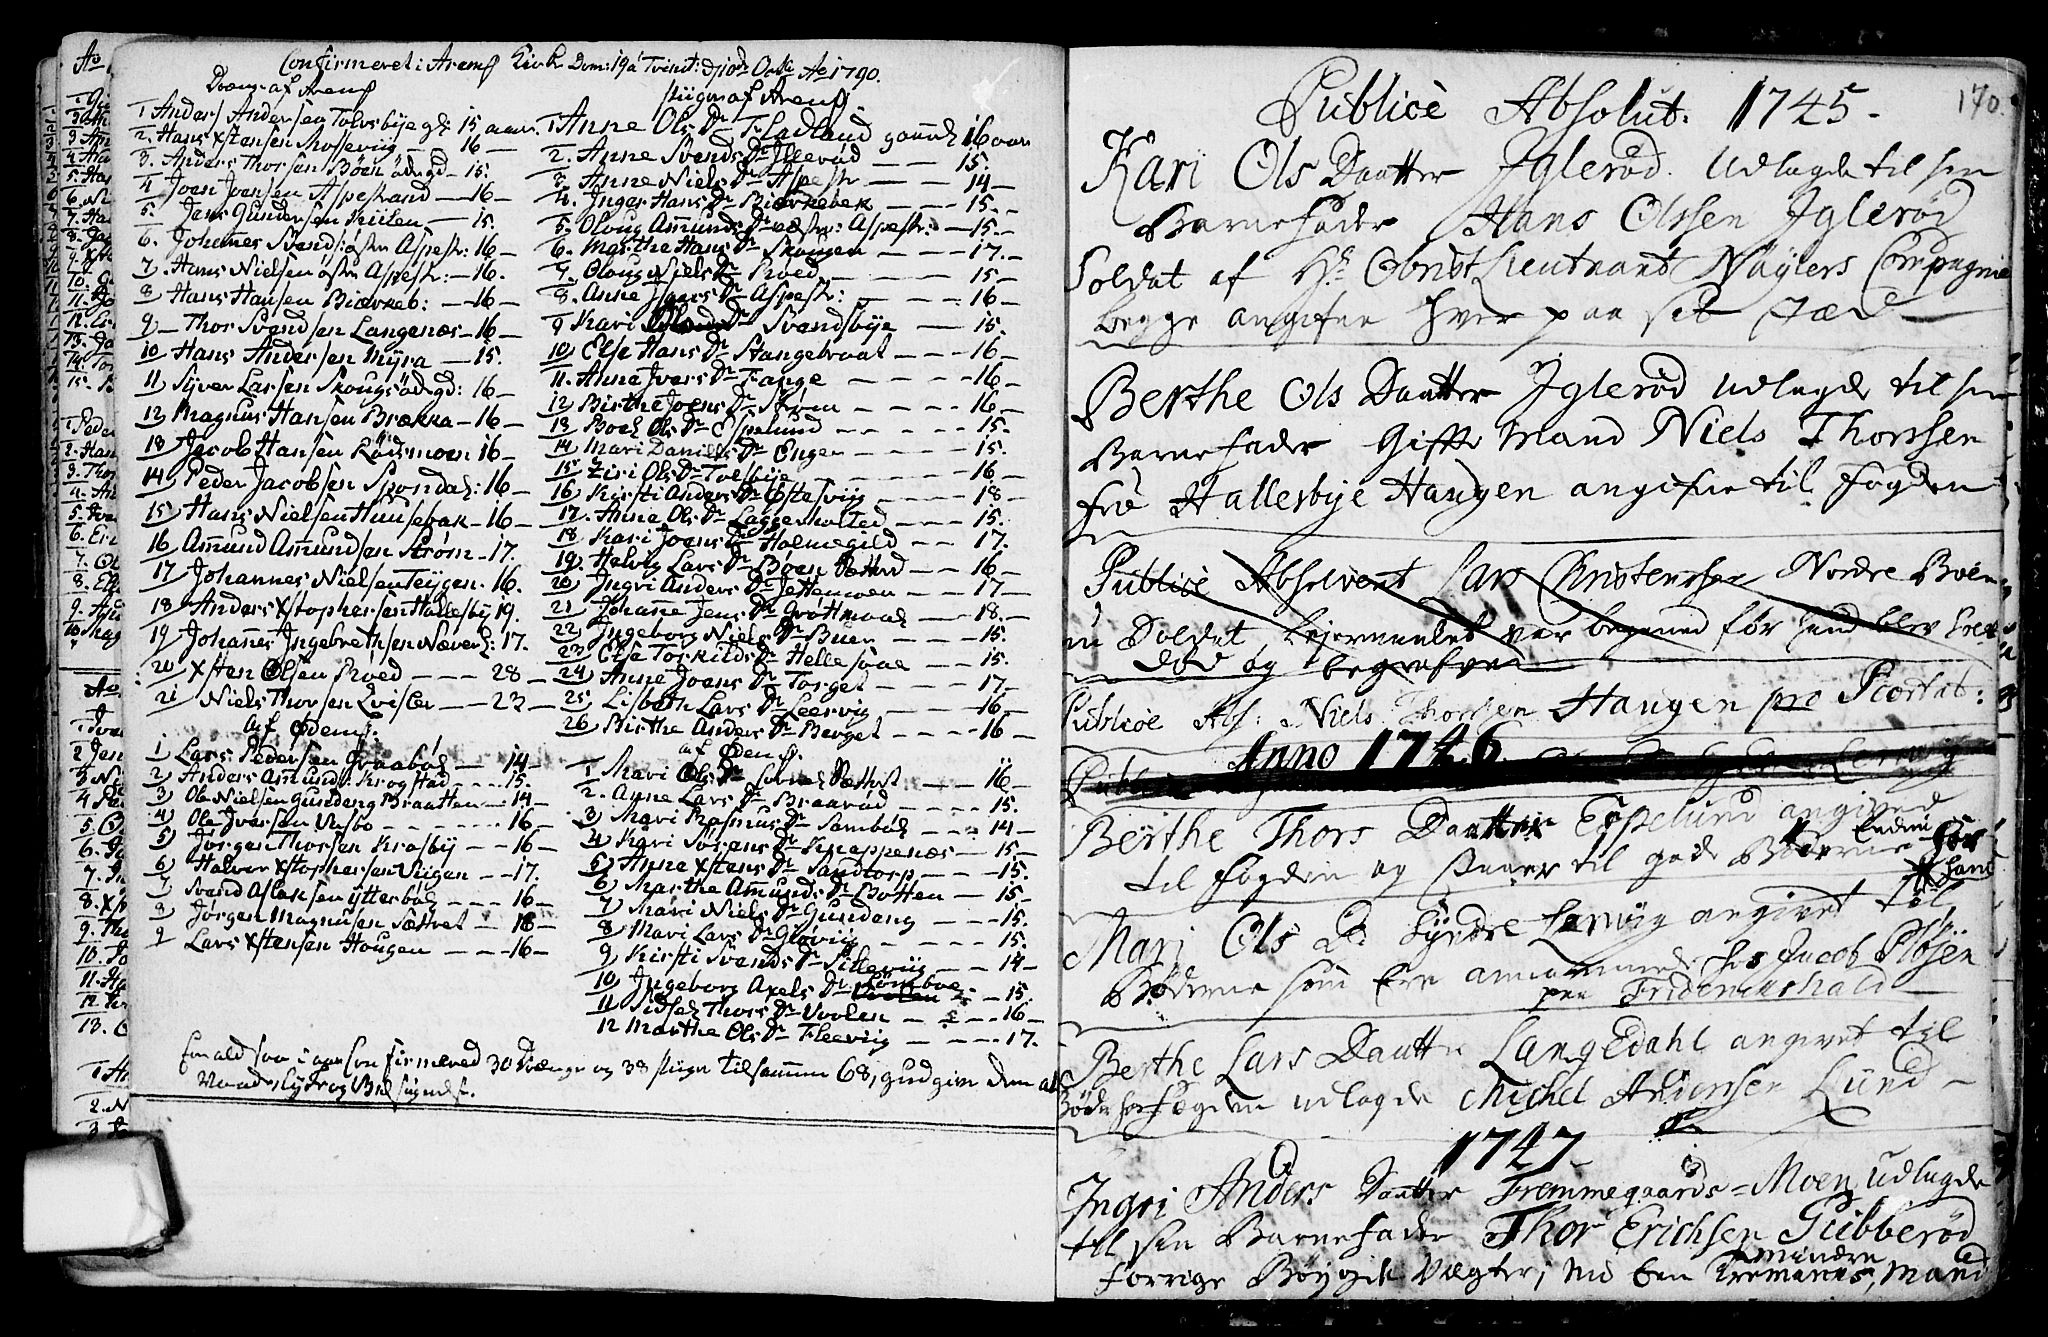 Confirmeret i Aremk Kirke Dom: 19 á Trinit: d 10de Octbr Ao 1790.
Drenge af Aremk
1 Anders Andersen Tolvsbye gl: 15 aar.
2. Hans Xstensen Moseviig — 16 —
3. Anders Thorsen Böen ödegd — 15.
4 Joen Joensen Aspestrand — 16 —
5. Jens Gundersen Kiilen — 15.
6. Johannes Svends: östre Aspestr: 16 —
7. Hans Nielsen östre Aspestr: — 16.
8 Hans Hansen Biørkeb: — 16 —
9 — Thor Svendsen Langenæs — 16 —
10 Hans Andersen Myra — 15.
11 Syver Larsen Skougsødegd: 16 —
12 Magnus Hansen Brækka — 16 —
13 Jacob Hansen Rödsmoen 16 —
14 Peder Jacobsen Sköndal: 16 —
15 Hans Nielsen Huusebak — 16 —
16 Amund Amundsen Strøm — 17.
17 Johannes Nielsen Teygen. 16.
18 Anders Xstophersen Hallesby 19.
19 Johannes Ingebrethsen Næver: 17.
20 Xsten Olsen Røed — — — 28 —
21 Niels Thorsen Qvisler — — 23 —
Af Ödemk.
1 Lars Pedersen Graabøl — 14 —
2 Anders Amunds. Krogstad — — 15.
3 Ole Nielsen Gundeng Braatten — 14 —
4 Ole Iversen Ursbo — — — 16 —
5 Jørgen Thorsen Krosby — 16 —
6 Halvor Xstophersen Viigen — 17.
7 Svend Aslaksen ytterbøl — — — 16 —
8 Jørgen Magnusen Sæthret — 18 —
9 Lars Xstensen Hougen — — 16 —
Piiger af Aremk.
1 Anne Ols Dr Fladland gaml 16 aar
2. Anne Svends Dr Illerød — — 15.
3. Anne Niels Dr Aspestr — — 14 —
4. Inger Hans Dr Biørkebek — — 15.
5. Oloug Amunds Dr vestre: Aspestr: — 15. —
6. Marthe Hans Dr Skougen — — 17. —
7. Oloug Niels Dr Røed — — — 15 —
8. Anne Igers Dr Aspestr: — — — 16 —
9 Kari Dr Svendsbye — — — 15.
10 Else Hans Dr Stangebraat — — — 16 —
11. Anne Ivers Dr Tange — — — 16 —
12 Birthe Joens Dr Strøm — — — 16 —
13 Boel Ols Dr Espelund — — — 15.
14 Mari Daniels Dr Engen — — — 15.
15 Ziri Ols Dr Tolfsbye — — — 16 —
16 Kirsti Anders Dr Østesviig — — — 18 —
17. Anne Ols Dr Laggerholted — — — 15.
18 Kari Joens Dr Holmegild — — 17.
19 Helvig Lars Dr Böen — — 16 —
20 Ingri Anders Dr Jettemoen — — 17 —
21 Johane Jens Dr Grøttmoel — — 18. —
22 Ingeborg Niels Dr Buer — — — 15.
23 Else Torkilds Dr Hellesaae — — 15.
24 Anne Joens Dr Torget — — — 17 —
25 Lisbeth Lars Dr Leervig — — — 16 —
26 Birthe Anders Dr Berget — — — 16 —
af Ødemk.
1 Mari Ols Dr Sæthret — — 16 —
2. Anne Lars Dr Braarød — — — 15.
3 Mari Rasmus Dr Sambøl — — — 14 —
4 Kari Sørens Dr Knappenæs — 15 —
5 Anne Xstens Dr Sandtorp — — — 15.
6 Marthe Amunds Dr Botten — — 15.
7 Mari Niels Dr Gundeng — — — 15.
8 Mari Lars Dr Gløviig — — — 15.
9 Kirsti Svends Dr Silleviig — — 14 —
10 Ingeborg Axels Dr — — 15.
11 Sidsel Thors Dr Voolen — — — 16 —
12 Marthe Ols Dr Fleeviig — — — 17.
Er altsaa i aar Confirmered 30 Drænge og 38 Piiger tilsammen 68, gud give dem al
Naade, Lyst og Velsignelse.
170.
Publicè Absolut. 1745 —
Kari Ols Daatter Iglerød. Udlagde til sin
Barnefader Hans Olssen Iglerød
Soldat af Hr. Obrist Lieutnant Näylers Compagnie
begge angifne hver paa sit stæd —
Berthe Ols Daatter Iglerød udlagde til sin
Barnefader Gifte Mand Niels Thorssen
fra Hallesbye Haugen angifne til fogden
Publicè Absolvent Lars Christenssen Nordre Böen
en Soldat Lejermaalet var begaaed før hand blev Soldat
død og begrafven
Publicè Abs: Niels Thorssen Haugen
Anno 1746.
Publice
Berthe Thors Daatter Espelund angived
til fogden og svarer til gode Bøderne
Mari Ols Dr Syndre Lervig angivet til
Bøderne som ere annammede hos Jacob Pløjen
paa Friderichshald
Berthe Lars Daatter Langedahl angivet til
Bøder hos fogden udlagde Michel Andersen Lund —
1747
Ingri Anders Daatter Fremmegaards = Moen udlagde
til sin Barnefader Thor Erichsen Gubberød
forrige Böygde Vægter; Nu Een Mand